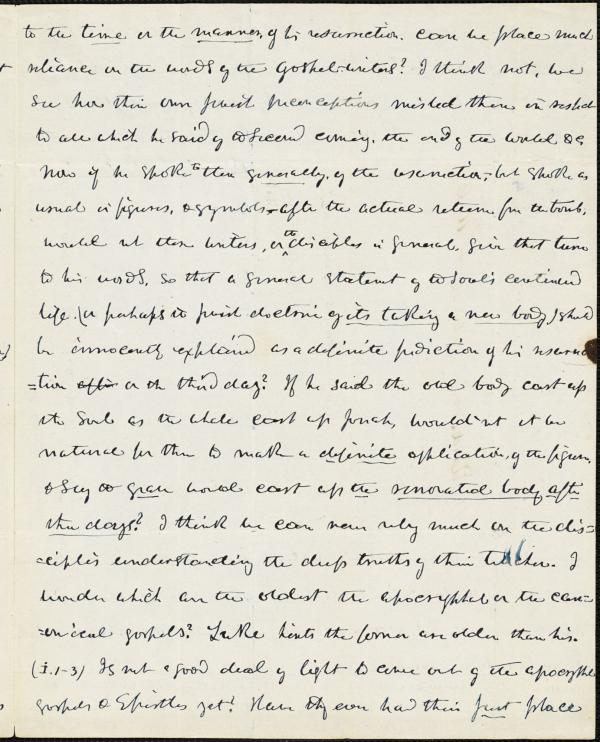 to the time or the manner, of his resurrection. Can we place much
reliance on the words of the Gospel-writers? I think not, we
see how their own Jewish preconceptions misled them in respect
to all which he said of his second coming, the end of the world &c
Now if he spoke to them generally, of the resurrection, but spoke as
usual in figures, & symbols - after the actual return from the tomb,
would not these writers, or the disciples in general, give that turn
to his words, so that a general statement of the soul's continued
life (or perhaps the Jewish doctrine of its taking a new body) should
be innocently explained as a definite prediction of his resurrec
=tion after on the third day? If he said the old body cast up
the Soul as the whale cast up Jonah, wouldn't it be
natural for them to make a definite application, of the figure,
& say the grave would cast up the renovated body after
three days? I think we can never rely much on the dis=
=ciples understanding the deep truths of their teacher. I
wonder which are the oldest the apocryphal or the can=
=onical gospels? Luke hints the former are older than his.
(i.1-3) Is not a good deal of light to come out of the apocryphal
gospels & Epistles yet? Have they ever had their just place